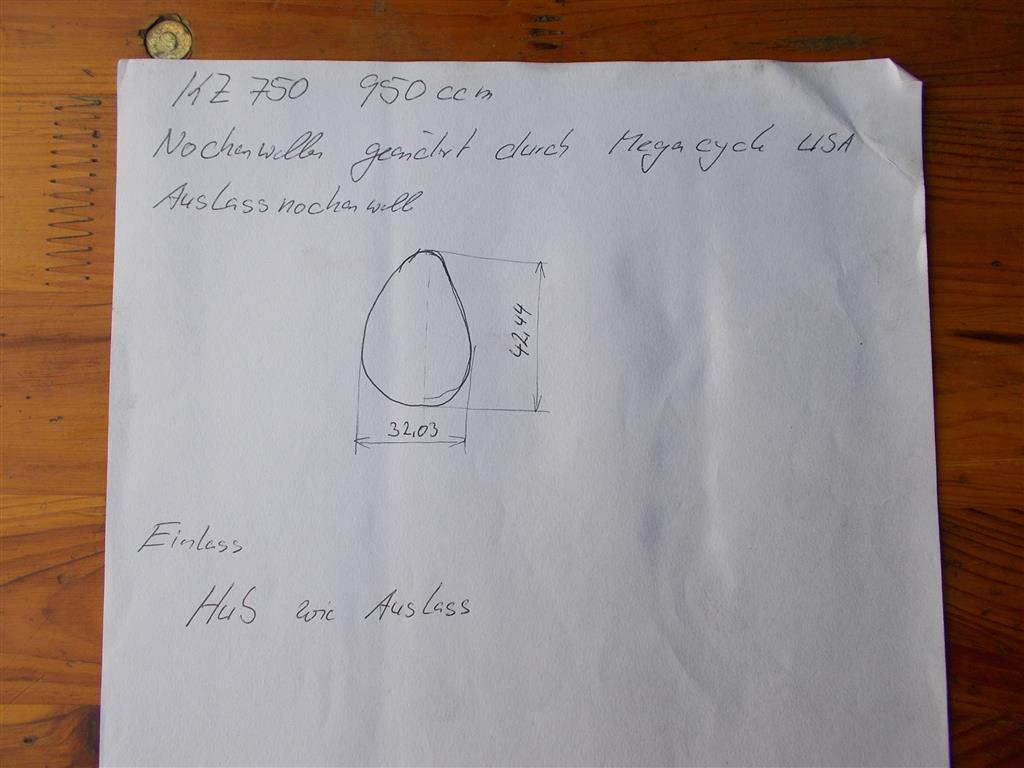 KZ 750 950 ccm
Nockenwellen geändert durch Megacycle USA
Auslassnockenwelle
42,44
32,03
Einlass
Hub wie Auslass